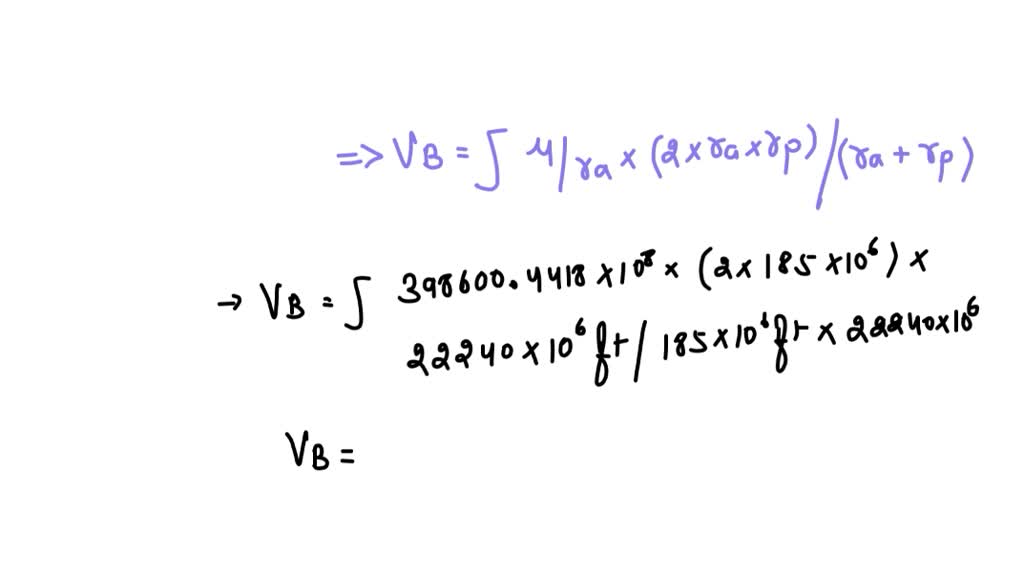 => VB = ∫ μ/ra × (2 × ra × rp)/(ra + rp)
→ VB = ∫ 398600.4418 × 10⁸ × (2 × 185 × 10⁶) ×
22240 × 10⁶ ft / 185 × 10⁶ ft × 22240 × 10⁶
VB =